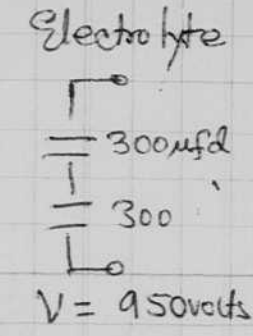 Electrolyte
300µfd
300
V = 950volts